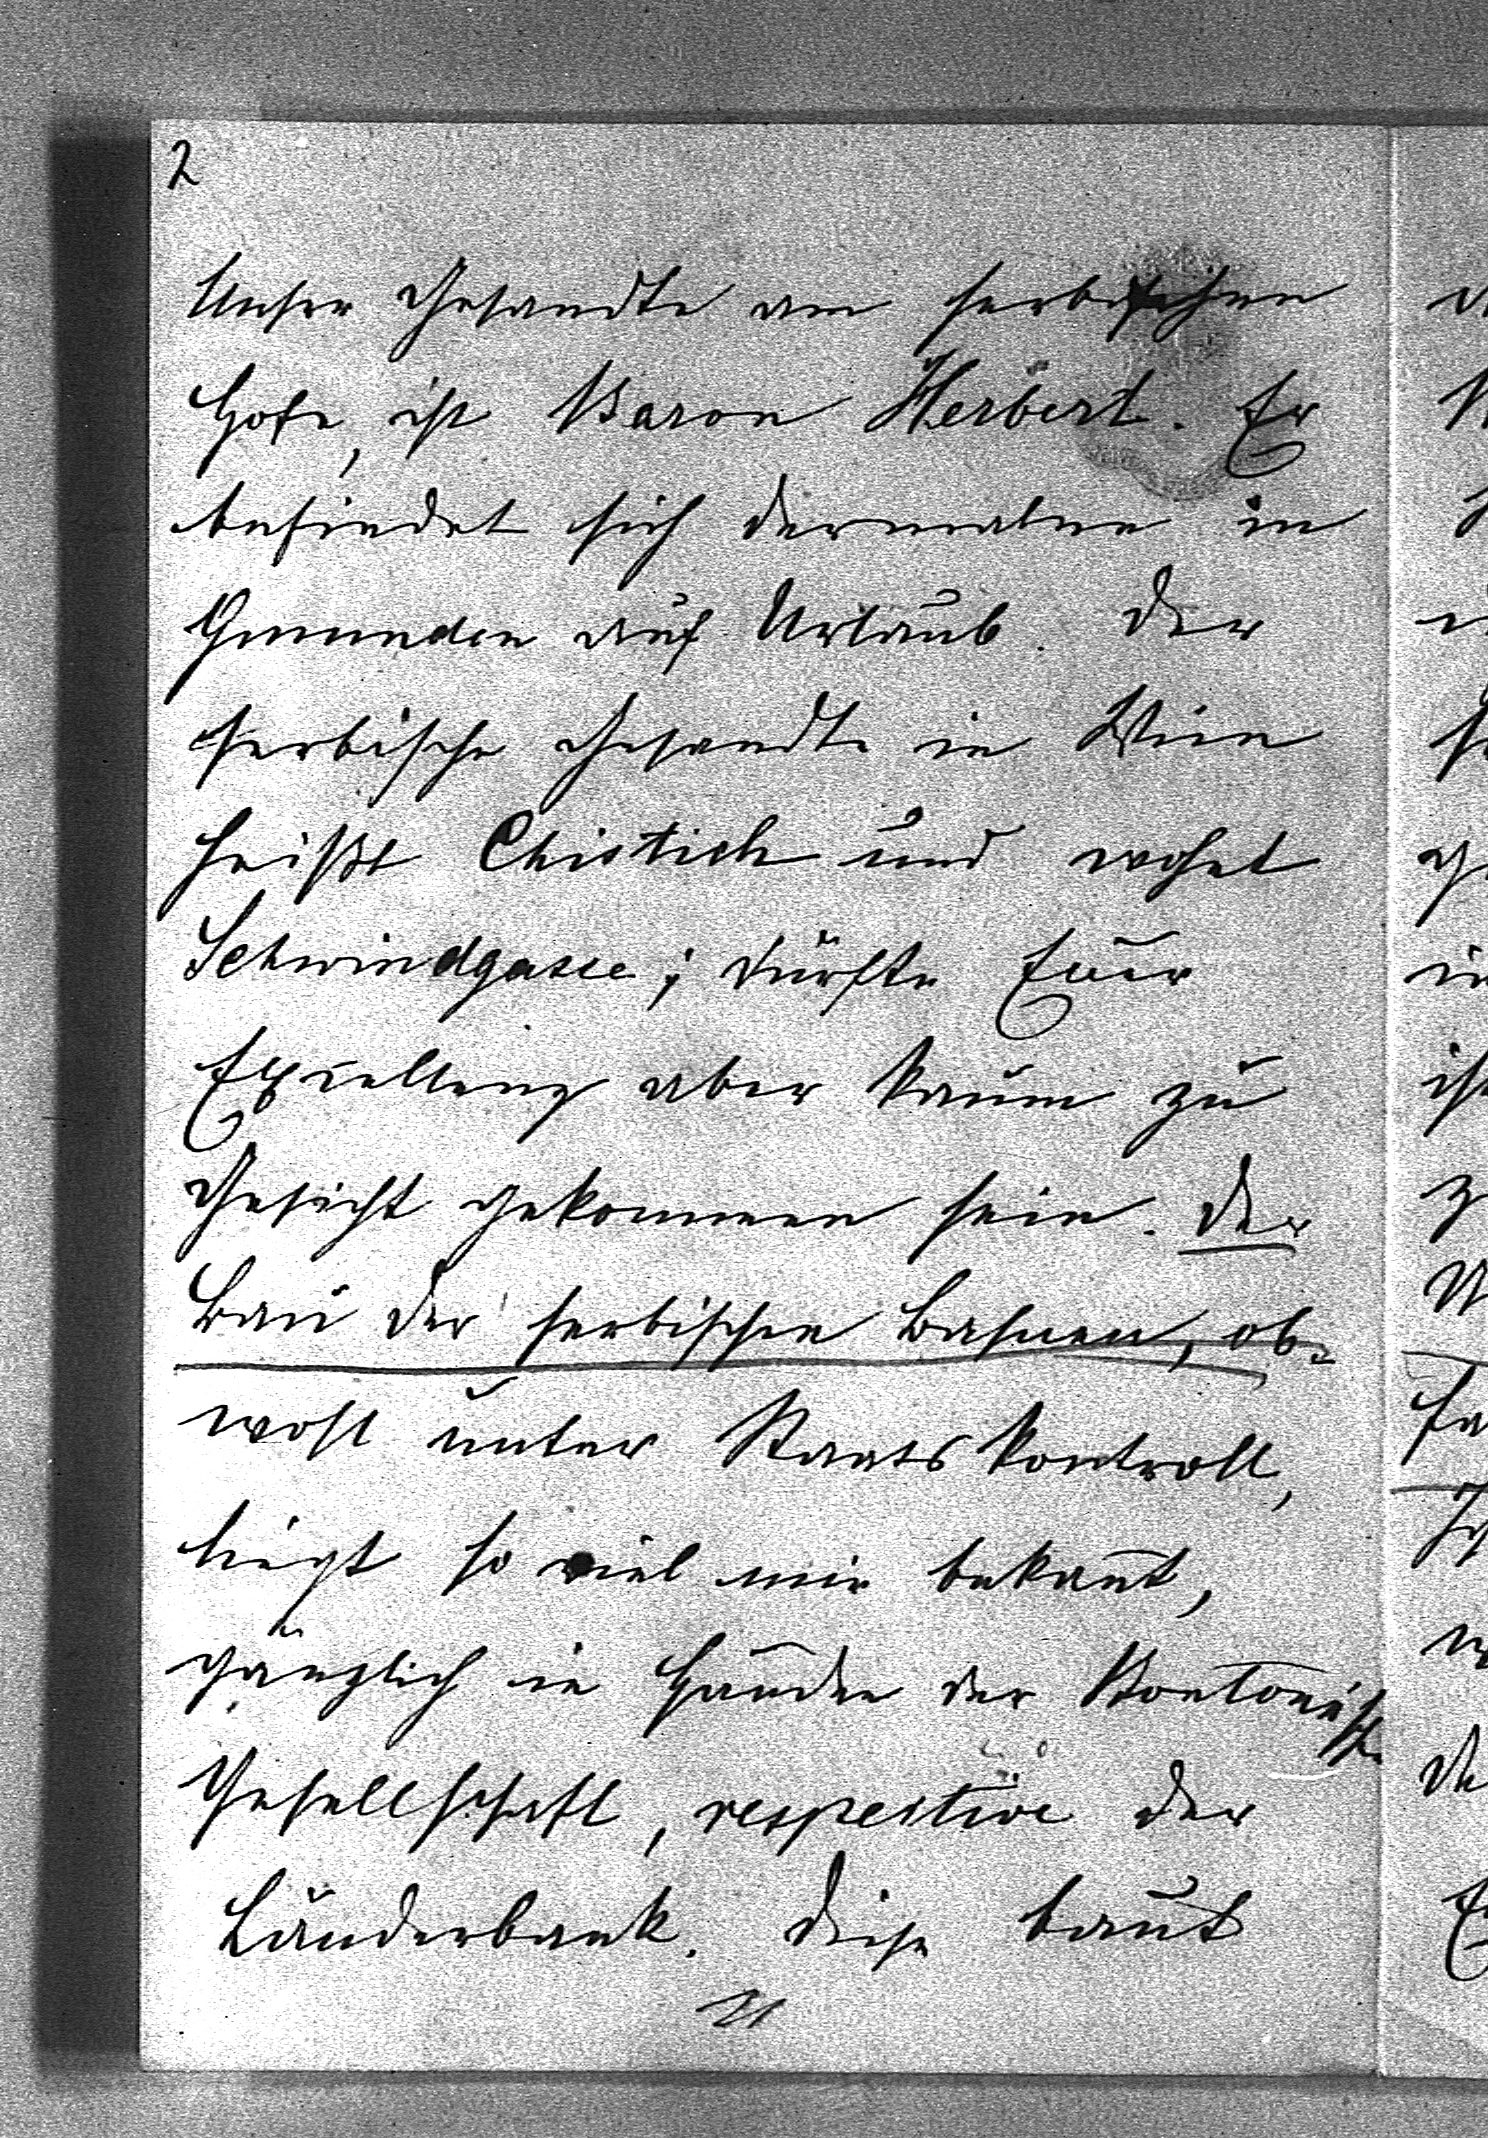 2
Unser Gesandte am serbischen
Hofe, ist Baron Herbert. Er
befindet sich dermalen in
Gmunden auf Urlaub. Der
serbische Gesandte in Wien
heißt Christich und wohnt
Schwindgasse; dürfte Euer
Exzellenz aber kaum zu
Gesicht gekommen sein. Der
Bau der serbischen Bahnen, ob-
wohl unter Staatskontroll,
liegt so viel mir bekannt,
gänzlich in Händen der Bontoux'sch.
Gesellschaft, respective der
Länderbank. Diese baut